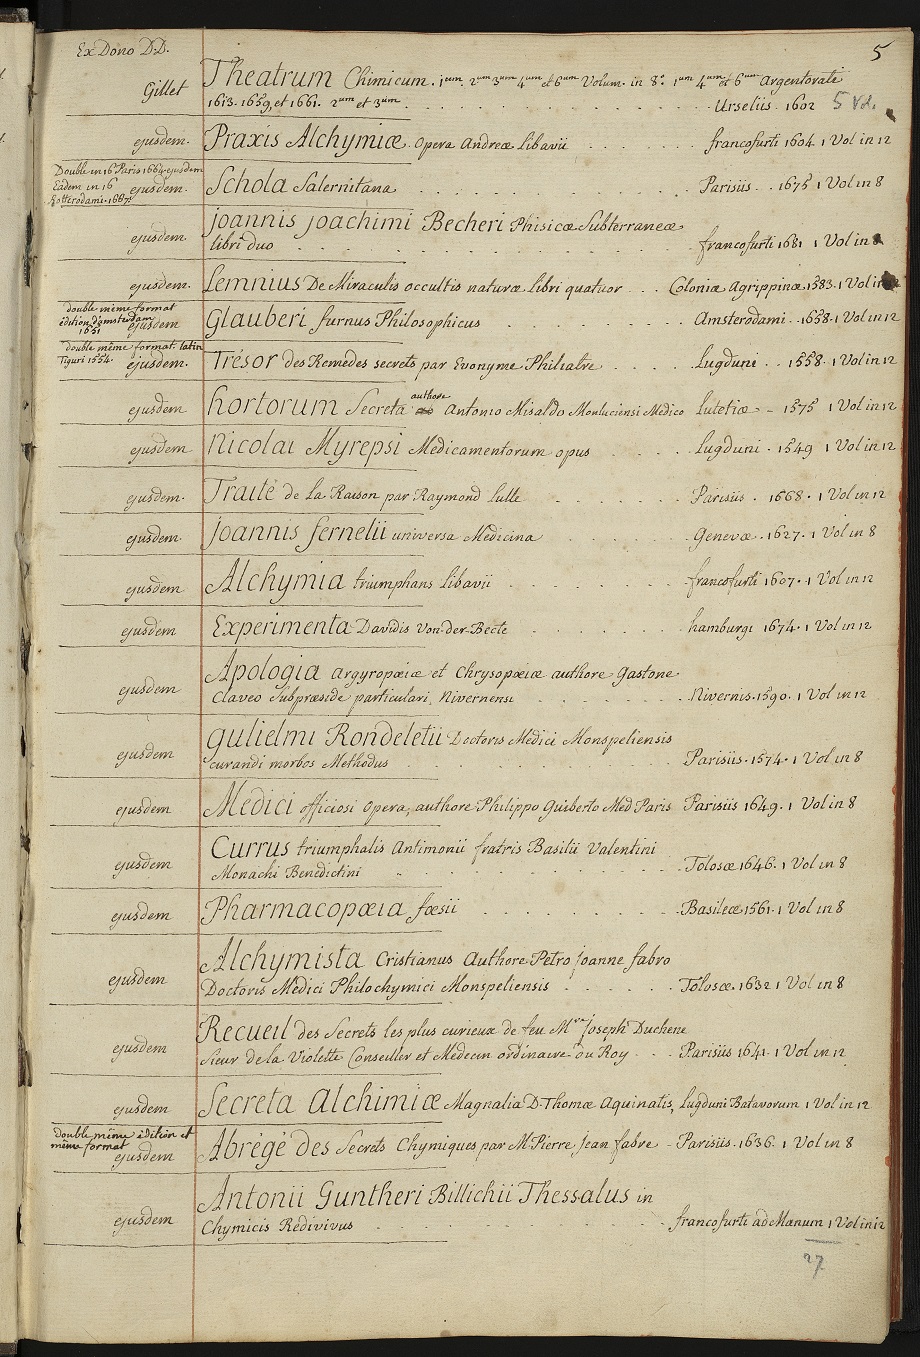 5
Ex Dono D.D.
Gillet Theatrum Chimicum. 1um. 2um 3um 4um et 6um Volum. in 8o. 1um 4um et 6um Argentorati
1613. 1659, et 1661. 2um et 3um . . . . . . . . . Urseliis . 1602 5 vol.
ejusdem. Praxis Alchymiæ opera Andreæ Libavii . . . . . . francofurti 1604. 1 Vol in 12
Double in 16 Paris 1664. ejusdem
Eadem in 16
Rotterodami. 1667.
ejusdem. Schola Salernitana . . . . . . . . . Parisiis . . 1675 1 Vol in 8
ejusdem. Joannis Joachimi Becheri Phisicæ Subterraneæ
libri duo . . . . . . . . . francofurti 1681 1 Vol in 8
ejusdem. Lemnius De Miraculis occultis naturæ libri quatuor . . Coloniæ Agrippinæ 1583. 1 Vol in
double même format
édition d'amsterdam
1651
ejusdem Glauberi furnus Philosophicus . . . . . . . Amsterodami . . 1658. 1 Vol in 12
double même format. latin
Tiguri 1554.
ejusdem. Trésor des Remedes secrets par Evonyme Philiatre . . . . Lugduni . . 1558. 1 Vol in 12
ejusdem hortorum Secreta authore Antonio Misaldo Monluciensi Medico Lutetiæ - 1575 1 Vol in 12
ejusdem Nicolai Myrepsi Medicamentorum opus . . . . Lugduni . 1549 1 Vol in 12
ejusdem. Traité de la Raison par Raymond Lulle . . . . . . . Parisiis . 1668. 1 Vol in 12
ejusdem. Joannis fernelii universa Medicina . . . . . . Genevæ . 1627. 1 Vol in 8
ejusdem Alchymia triumphans Libavii . . . . . . . . francofurti 1607. 1 Vol in 12
ejusdem Experimenta Davidis Von-der-Becte . . . . . . . hamburgi 1674. 1 Vol in 12
ejusdem Apologia argyropœiæ et Chrysopœiæ authore Gastone
Claveo Subpræside particulari, Nivernensi . . . . . . . Nivernis. 1590. 1 Vol in 12
ejusdem gulielmi Rondeletii Doctoris Medici Monspeliensis
curandi morbos Methodus . . . . . . . . . . Parisiis. 1574. 1 Vol in 8
ejusdem Medici officiosi opera, authore Philippo Guiberto Med Paris Parisiis 1649. 1 Vol in 8
ejusdem Currus triumphalis Antimonii fratris Basilii Valentini
Monachi Benedictini . . . . . . . . . Tolosæ 1646. 1 Vol in 8
ejusdem Pharmacopœia fœsii . . . . . . . . Basileæ 1561. 1 Vol in 8
ejusdem Alchymista Cristianus Authore Petro Joanne fabro
Doctoris Medici Philochymici Monspeliensis . . . . . . Tolosæ. 1632 1 Vol in 8
ejusdem Recueil des Secrets les plus curieux de feu Mre Joseph Duchene
Sieur de la Violette Conseiller et Medecin ordinaire du Roy . . . Parisiis 1641. 1 Vol in 12
ejusdem Secreta Alchimiæ Magnalia D. Thomæ Aquinatis, Lugduni Batavorum 1 Vol in 12
double même édition et
même format
ejusdem Abrégé des Secrets Chymiques par Mr Pierre Jean fabre - Parisiis. 1636. 1 Vol in 8
ejusdem Antonii Guntheri Billichii Thessalus in
Chymicis Redivivus . . . . . . . . . . . francofurti ad Mænum 1 Vol in 12
27